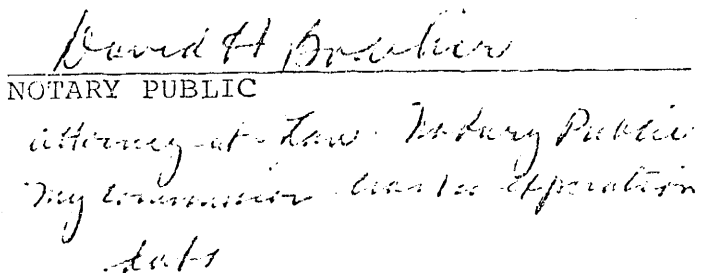 David H
NOTARY PUBLIC
Attorney-at-Law Notary Public
My commission has no expiration
date